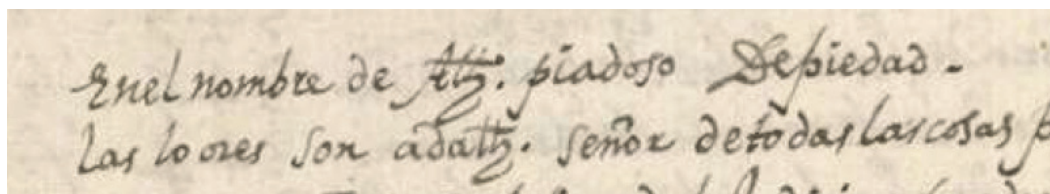 En el nombre de Allh. piadoso De piedad.
las loores son ad allh. señor de todas las cosas